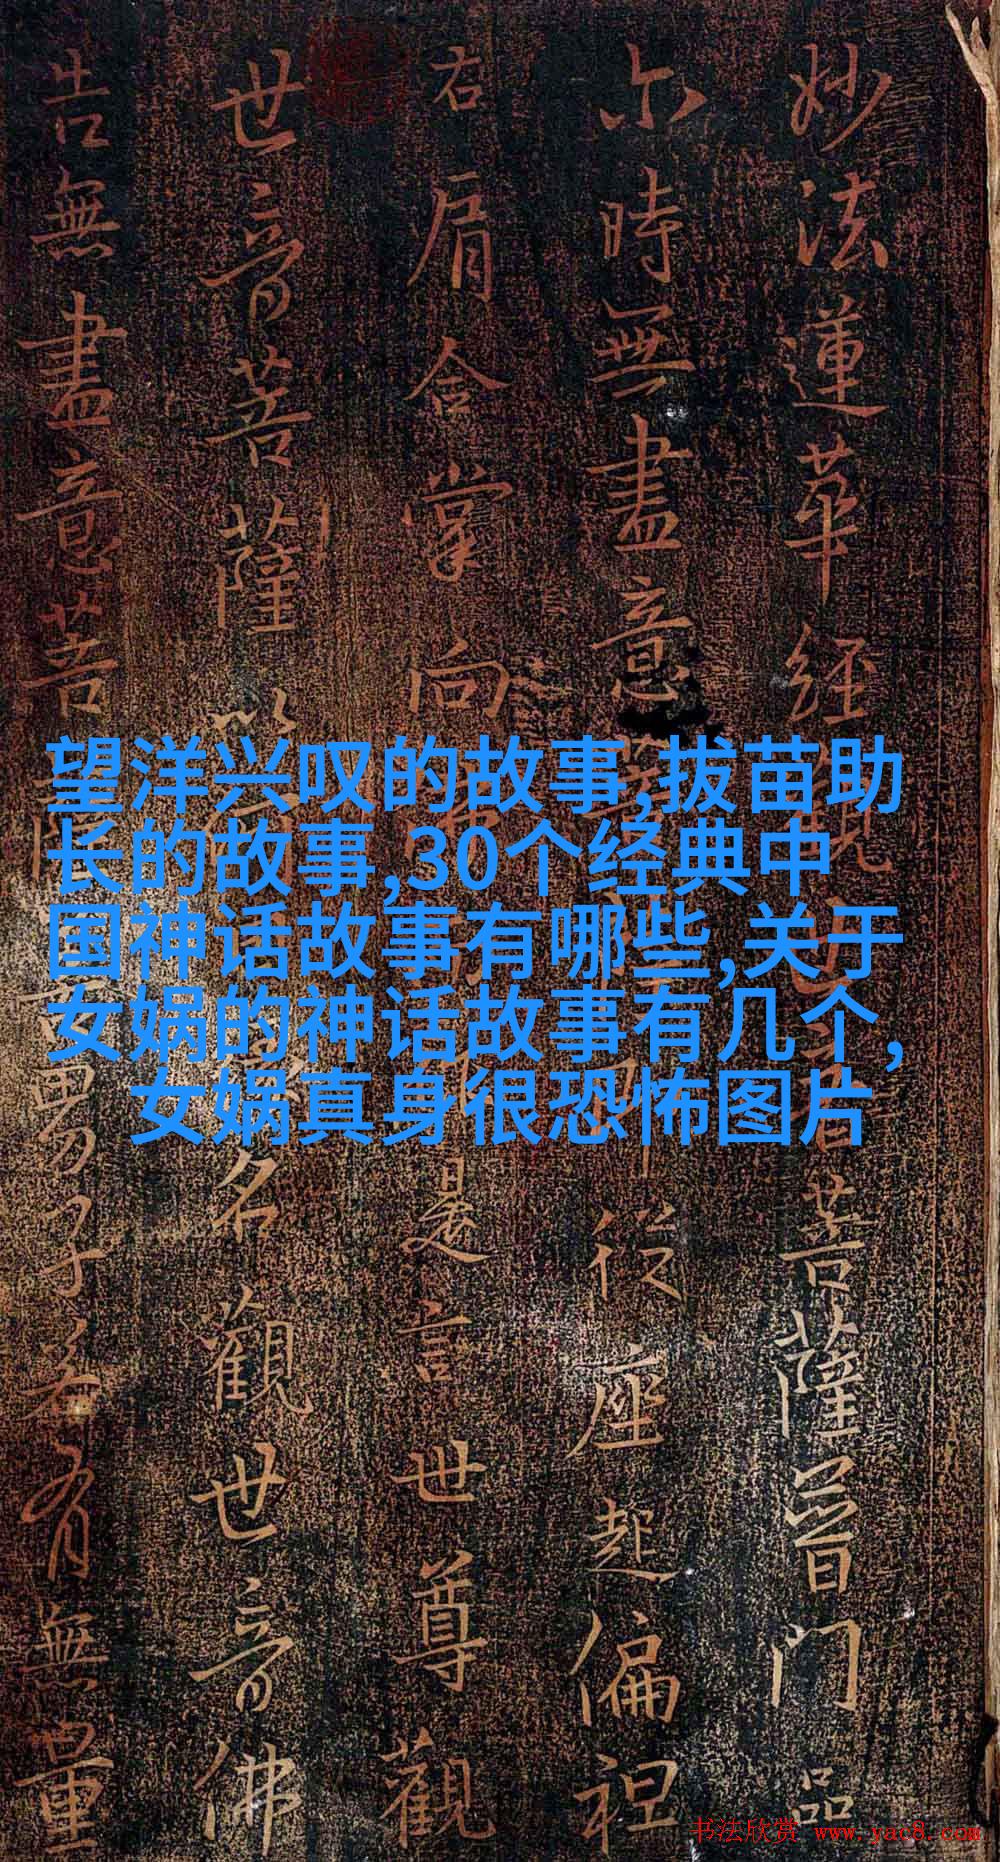 妙法蓮華經菩薩普門品
尔時無盡意從座起偏袒
右肩合掌向是言世尊觀
世音菩薩以名觀世音佛
告無盡意菩男子若有無量
望洋兴叹的故事,拔苗助
长的故事,30个经典中
国神话故事有哪些,关于
女娲的神话故事有几个,
女娲真身很恐怖图片
书法欣赏 www.yac8.com